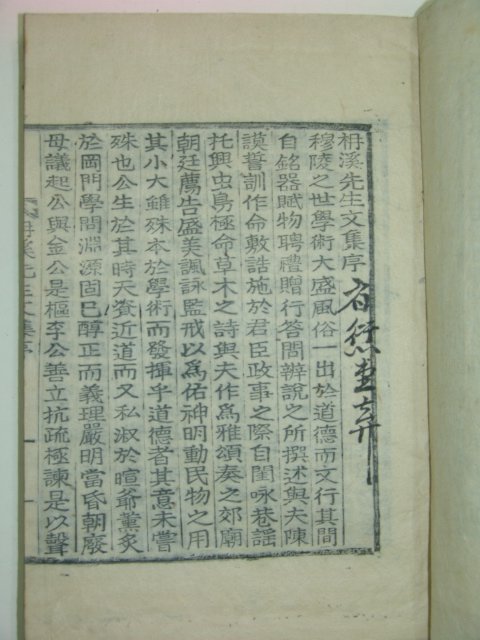 枏溪先生文集序
穆陵之世學術大盛風俗一出於道德而文行其間
自銘器賦物聘禮贈行答問辨說之所撰述與夫陳
謨誓訓作命敷誥施於君臣政事之際自閭咏巷謠
托興虫鳥極命草木之詩與夫作爲雅頌奏之郊廟
朝廷薦告盛美諷詠監戒以爲佑神明動民物之用
其小大雖殊本於學術而發揮乎道德者其意未嘗
殊也公生於其時天資近道而又私淑於暄爺薰炙
於岡門學問淵源固已醇正而義理嚴明當昏朝廢
母議起公與金公是樞李公善立抗疏極諫是以聲
枏溪先生文集序